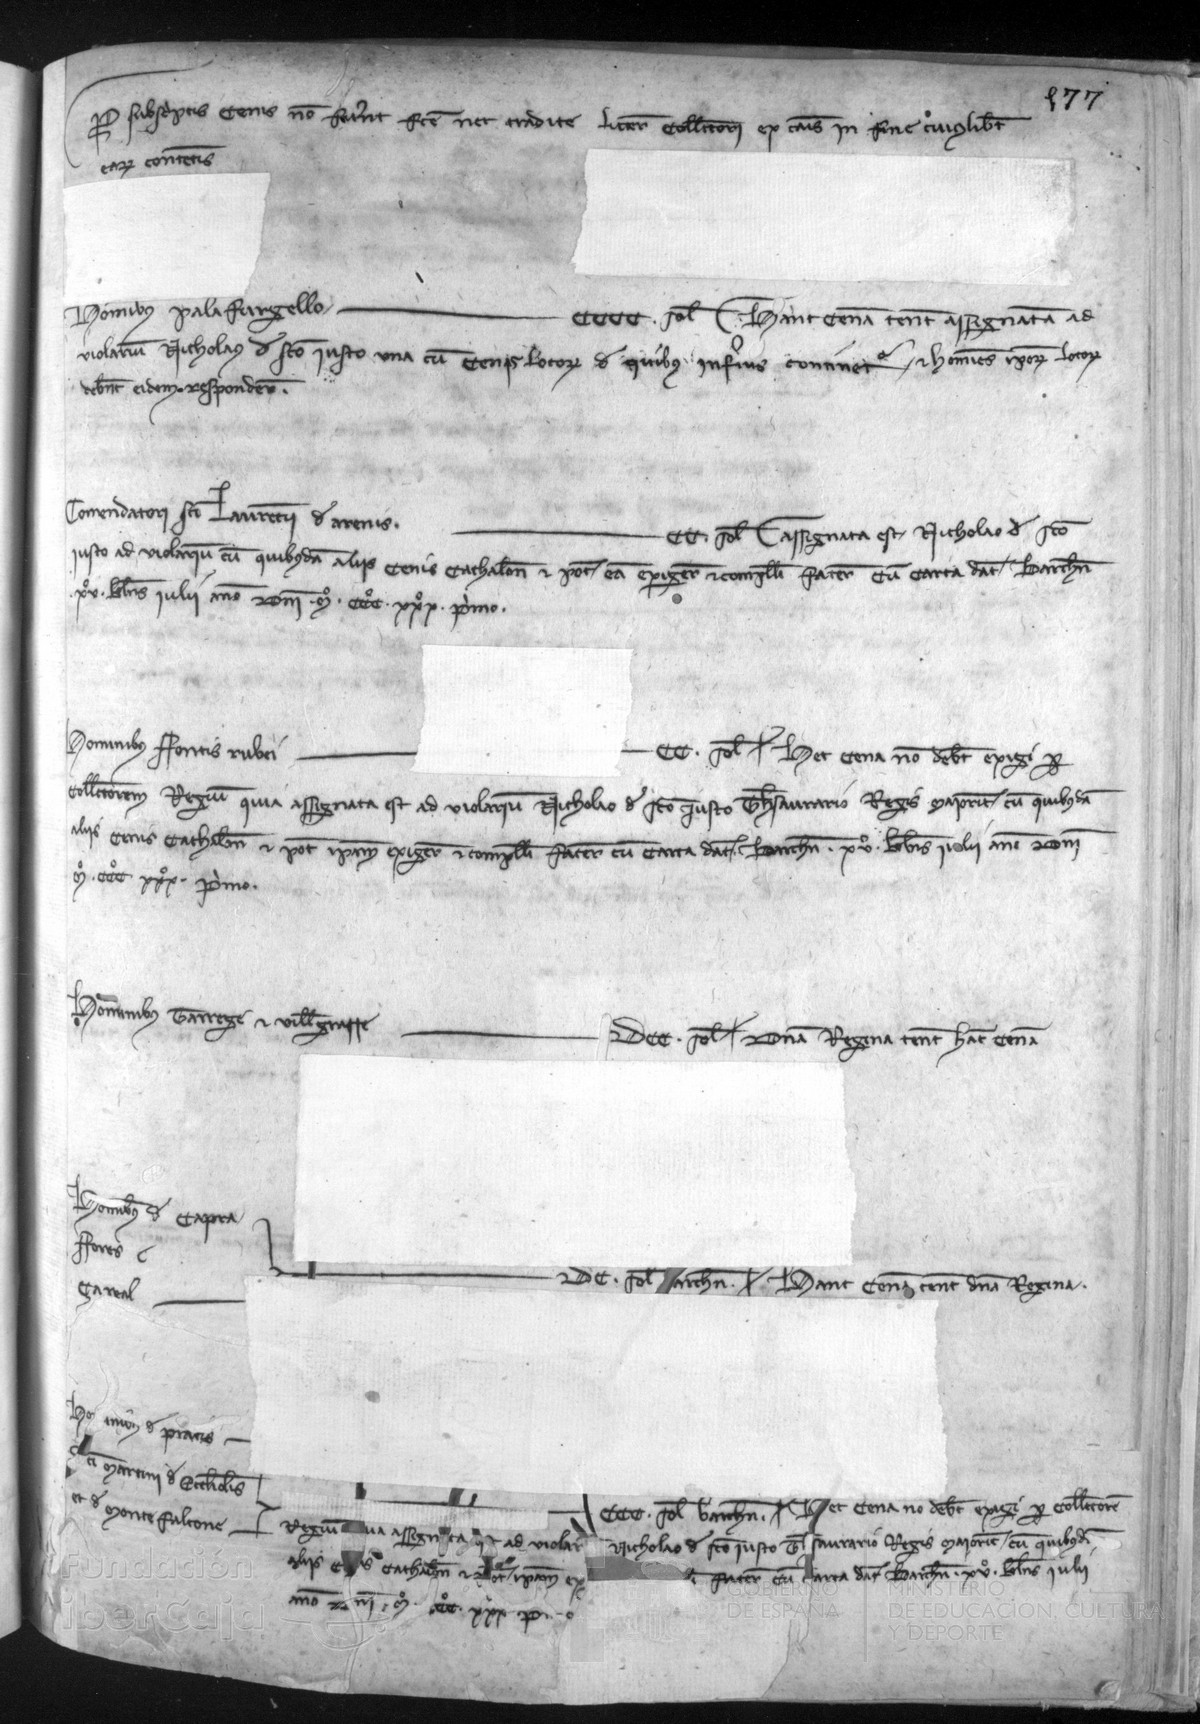 177
P subscriptis Cenis no fuert fce nec tradite litere Collectori ex caus in fine cuiuslibet
earum contentis
Hominibus palafurgello CCCC. sol Hanc Cenam tenet assignatam ad
violarium Nicholaus de sco iusto una cum Cenis locorum de quibus inferius continet et homines ipsorum locorum
debent eidem respondere.
Comendatori sci Laurencii de arenis. CC. sol assignata est Nicholao de sco
iusto ad violarium cum quibusdam aliis Cenis Cathalon et pot eam exigere et compelli facere cum Carta dat Barchn
.xv. kls iulii anno dni .m. CCC. xxx. primo.
Hominibus ffontis rubei CC. sol Hec Cena no debet exigi per
Collectorem Regium quia assignata est ad violarium Nicholao de sco iusto Thesaurario Regis maioric cum quibusdam
aliis Cenis Cathalon et pot ipam exigere et compelli facere cum Carta dat. Barchn. xv. kls iulii anno dni
m. CCC xxx. primo.
Hominibus Tarrege et villegrasse DCC. sol dna Regina tenet hanc Cenam
Hominibus de Capra
ffores
Gareal DC. sol barchn. Hanc Cenam tenet dna Regina.
Ho inibus de pratis
sci martini de
et de monte falcone CCC. sol barchn. Hec Cena no debet exigi per Collectore
Regium assignata ad violar Nicholao de sco iusto Thesaurario Regis maioric cum quibusdam
aliis Cathalon et pot ipam ex facere cum Carta dat Barchn. xv. kls iulii
anno dni. m. CCC. xxx. p o
Fundación
iberCaja
GOBIERNO
DE ESPAÑA
MINISTERIO
DE EDUCACIÓN, CULTURA
Y DEPORTE